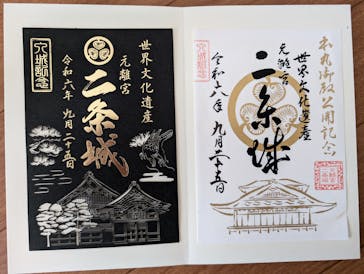 本丸御殿公開記念
世界文化遺産
元離宮
二条城
令和六年 九月二十五日
入城記念
世界文化遺産
元離宮
二条城
令和六年 九月二十五日
入城記念